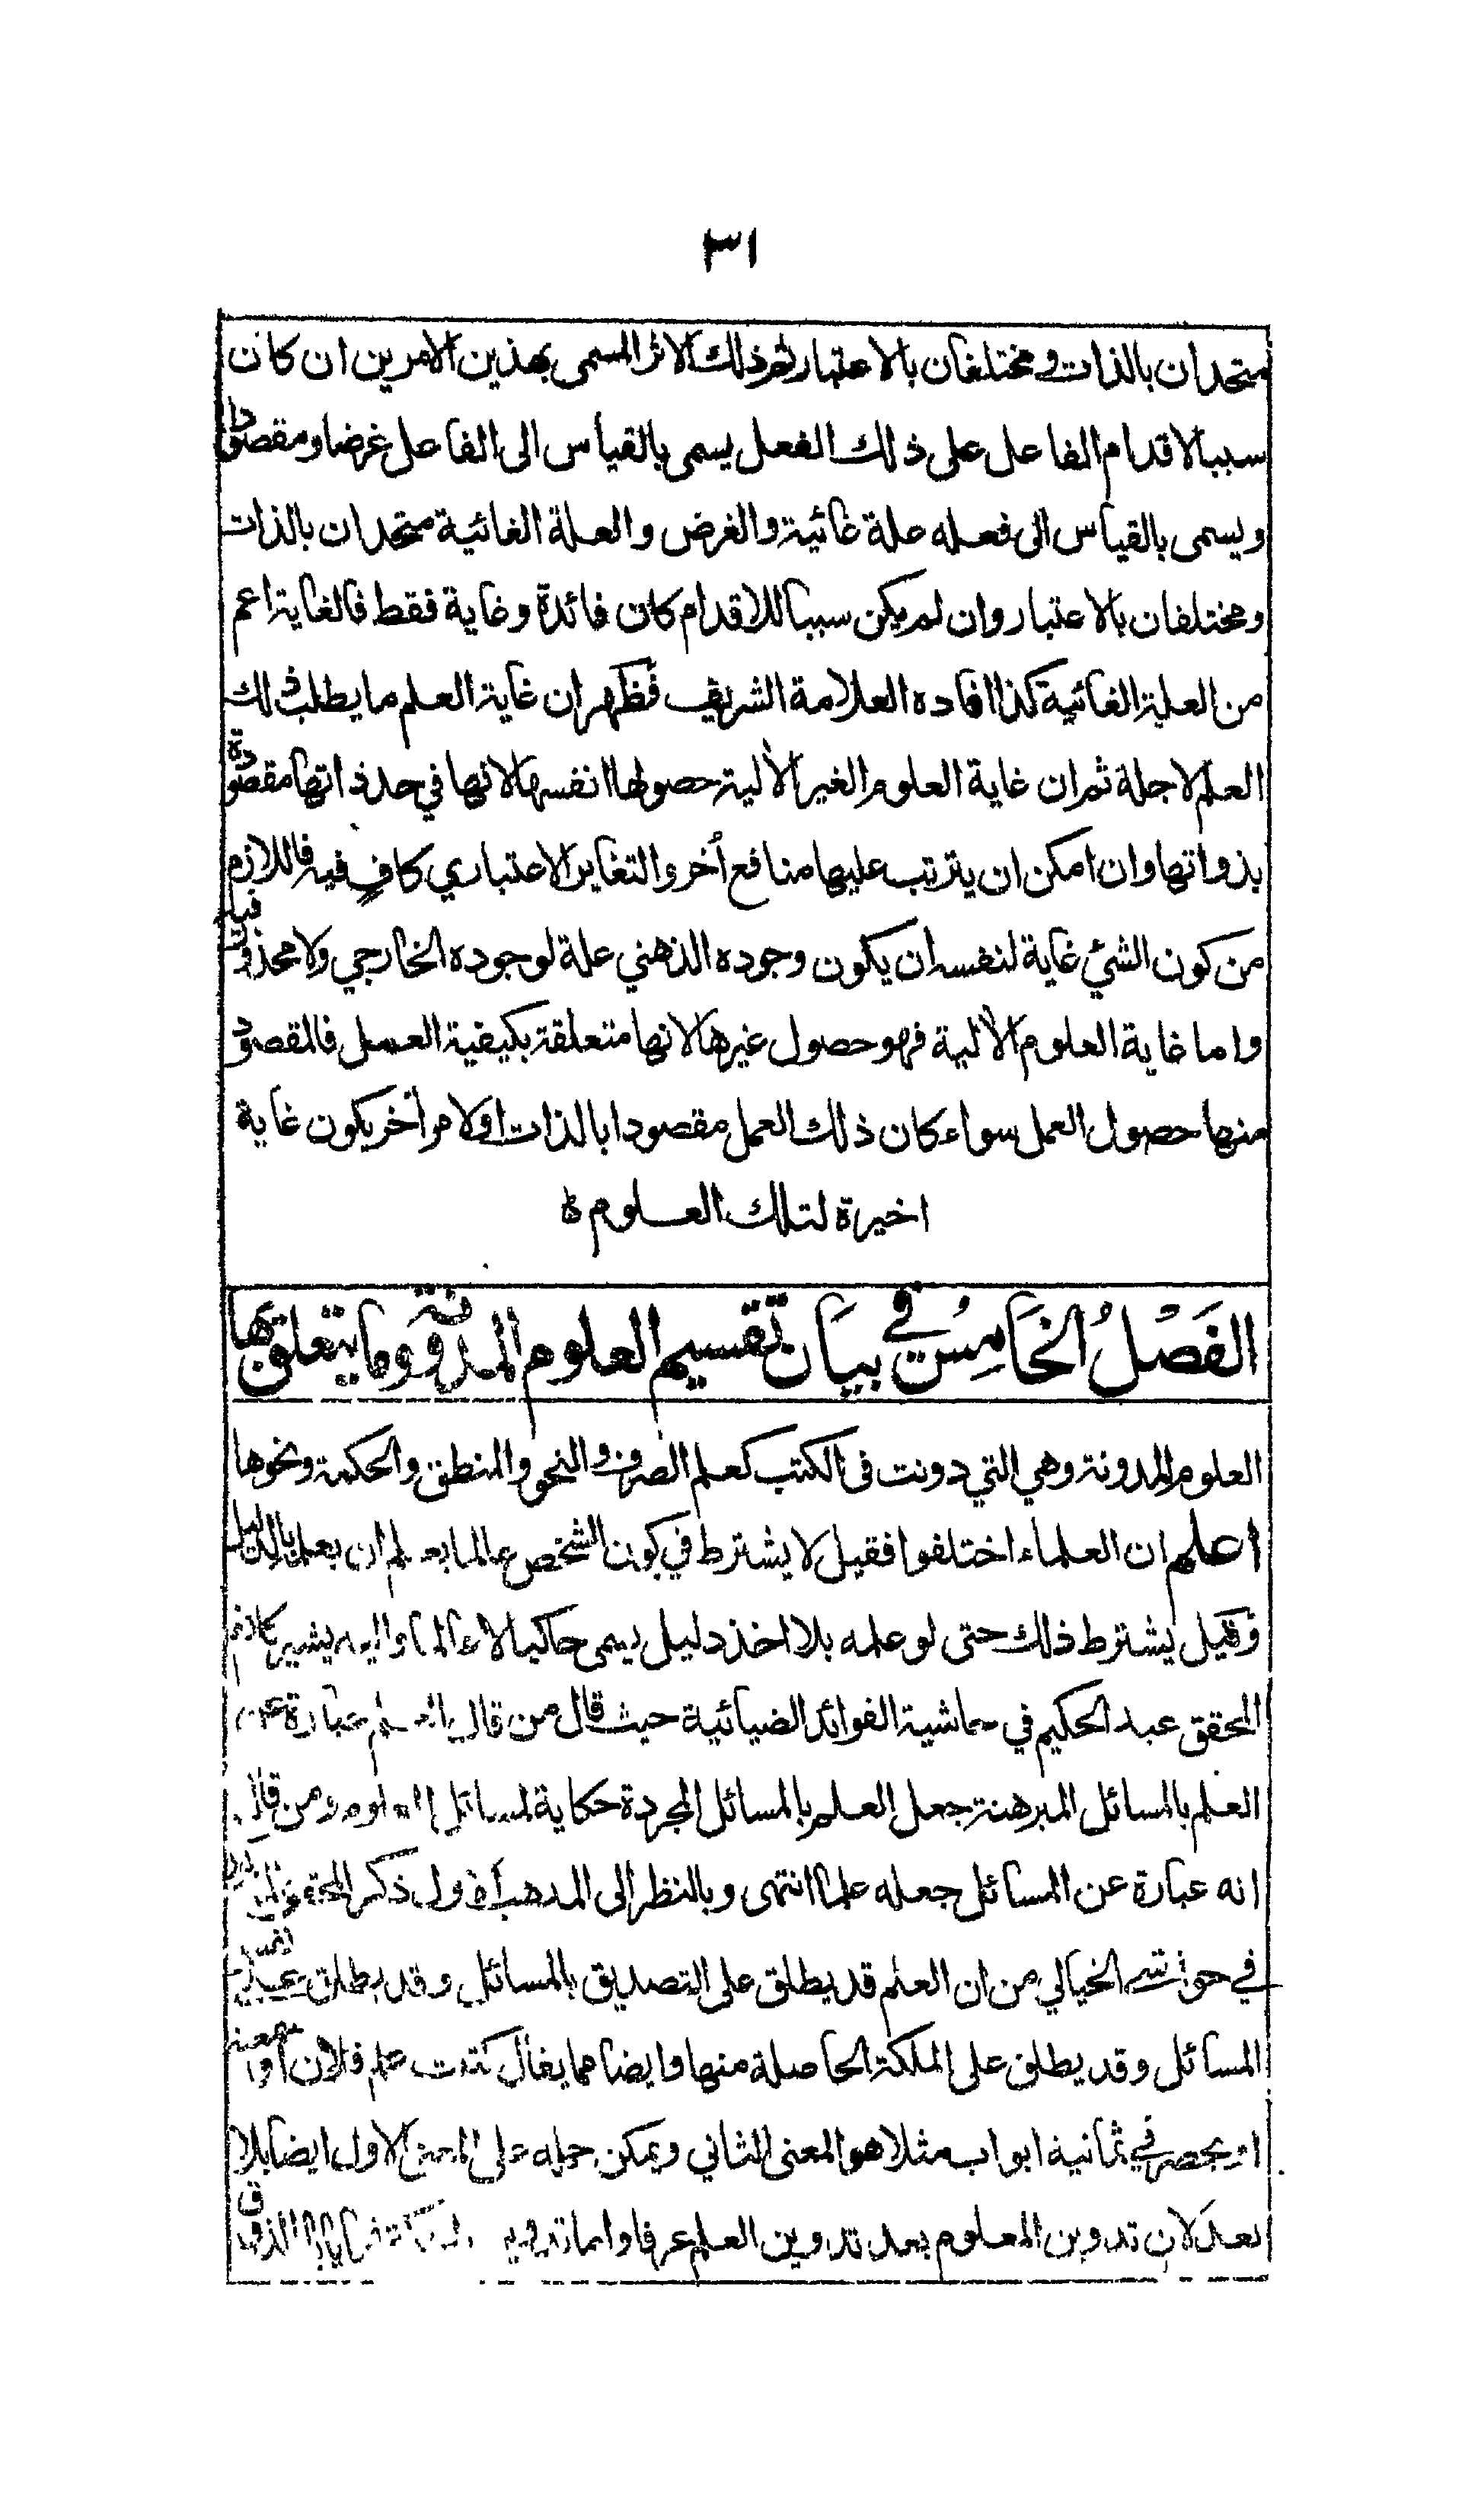 ٣١
متحدان بالذات و مختلفان بالاعتبار ثم ذلك الاثر المسمى بهذين الامرين ان كان
سببا لاقدام الفاعل على ذلك الفعل يسمى بالقياس الى الفاعل غرضا و مقصودا
و يسمى بالقياس الى فعله علة غائية و الغرض و العلة الغائية متحدان بالذات
و مختلفان بالاعتبار و ان لم يكن سببا للاقدام كان فائدة و غاية فقط فالغاية اعم
من العلة الغائية كذا افاده العلامة الشريف فظهر ان غاية العلم ما يطلب ذلك
العلم لاجلة ثم ان غاية العلوم الغير الألية حصولها انفسها لانها في حد ذاتها مقصودة
بذواتها و ان امكن ان يترتب عليها منافع أخر و التغاير الاعتباري كافٍ فيه فاللازم
من كون الشئ غاية لنفسه ان يكون وجوده الذهني علة لوجوده الخارجي و لا محذور فيه
و اما غاية العلوم الألية فهو حصول غيرها لانها متعلقة بكيفية العمل فالمقصود
منها حصول العمل سواء كان ذلك العمل مقصودا بالذات او لامر أخر يكون غاية
اخيرة لتلك العلوم
الفَصْلُ الخَامِسُ في بيَان تقسيم العلوم المدونة و ما يتعلق بها
العلوم المدونة و هي التي دونت في الكتب كعلم الصرف و النحو و المنطق و الحكمة و نحوها
اعلم ان العلماء اختلفوا فقيل لا يشترط في كون الشخص عالما بعلم ان يعلمه بالدليل
و قيل يشترط ذلك حتى لو علمه بلا اخذ دليل يسمى حاكيا لا عالما و اليه يشير كلام
المحقق عبد الحكيم في حاشية الفوائد الضيائية حيث قال من قال العلم عبارة عن
العلم بالمسائل المبرهنة جعل العلم بالمسائل المجردة حكاية لمسائل العلوم و من قال
انه عبارة عن المسائل جعله علما انتهى و بالنظر الى المذهب الاول ذكر المحقق
في حواشي الخيالي من ان العلم قد يطلق على التصديق بالمسائل و قد يطلق على نفس
المسائل و قد يطلق على الملكة الحاصلة منها و ايضا مما يقال كتبت علم فلان او سمعته
او يحصر في ثمانية ابواب مثلا هو المعنى الثاني و يمكن حمله على المعنى الاول ايضا بلا
بعد لان تدوين المعلوم بعد تدوين العلم عرفا و اما تدوين